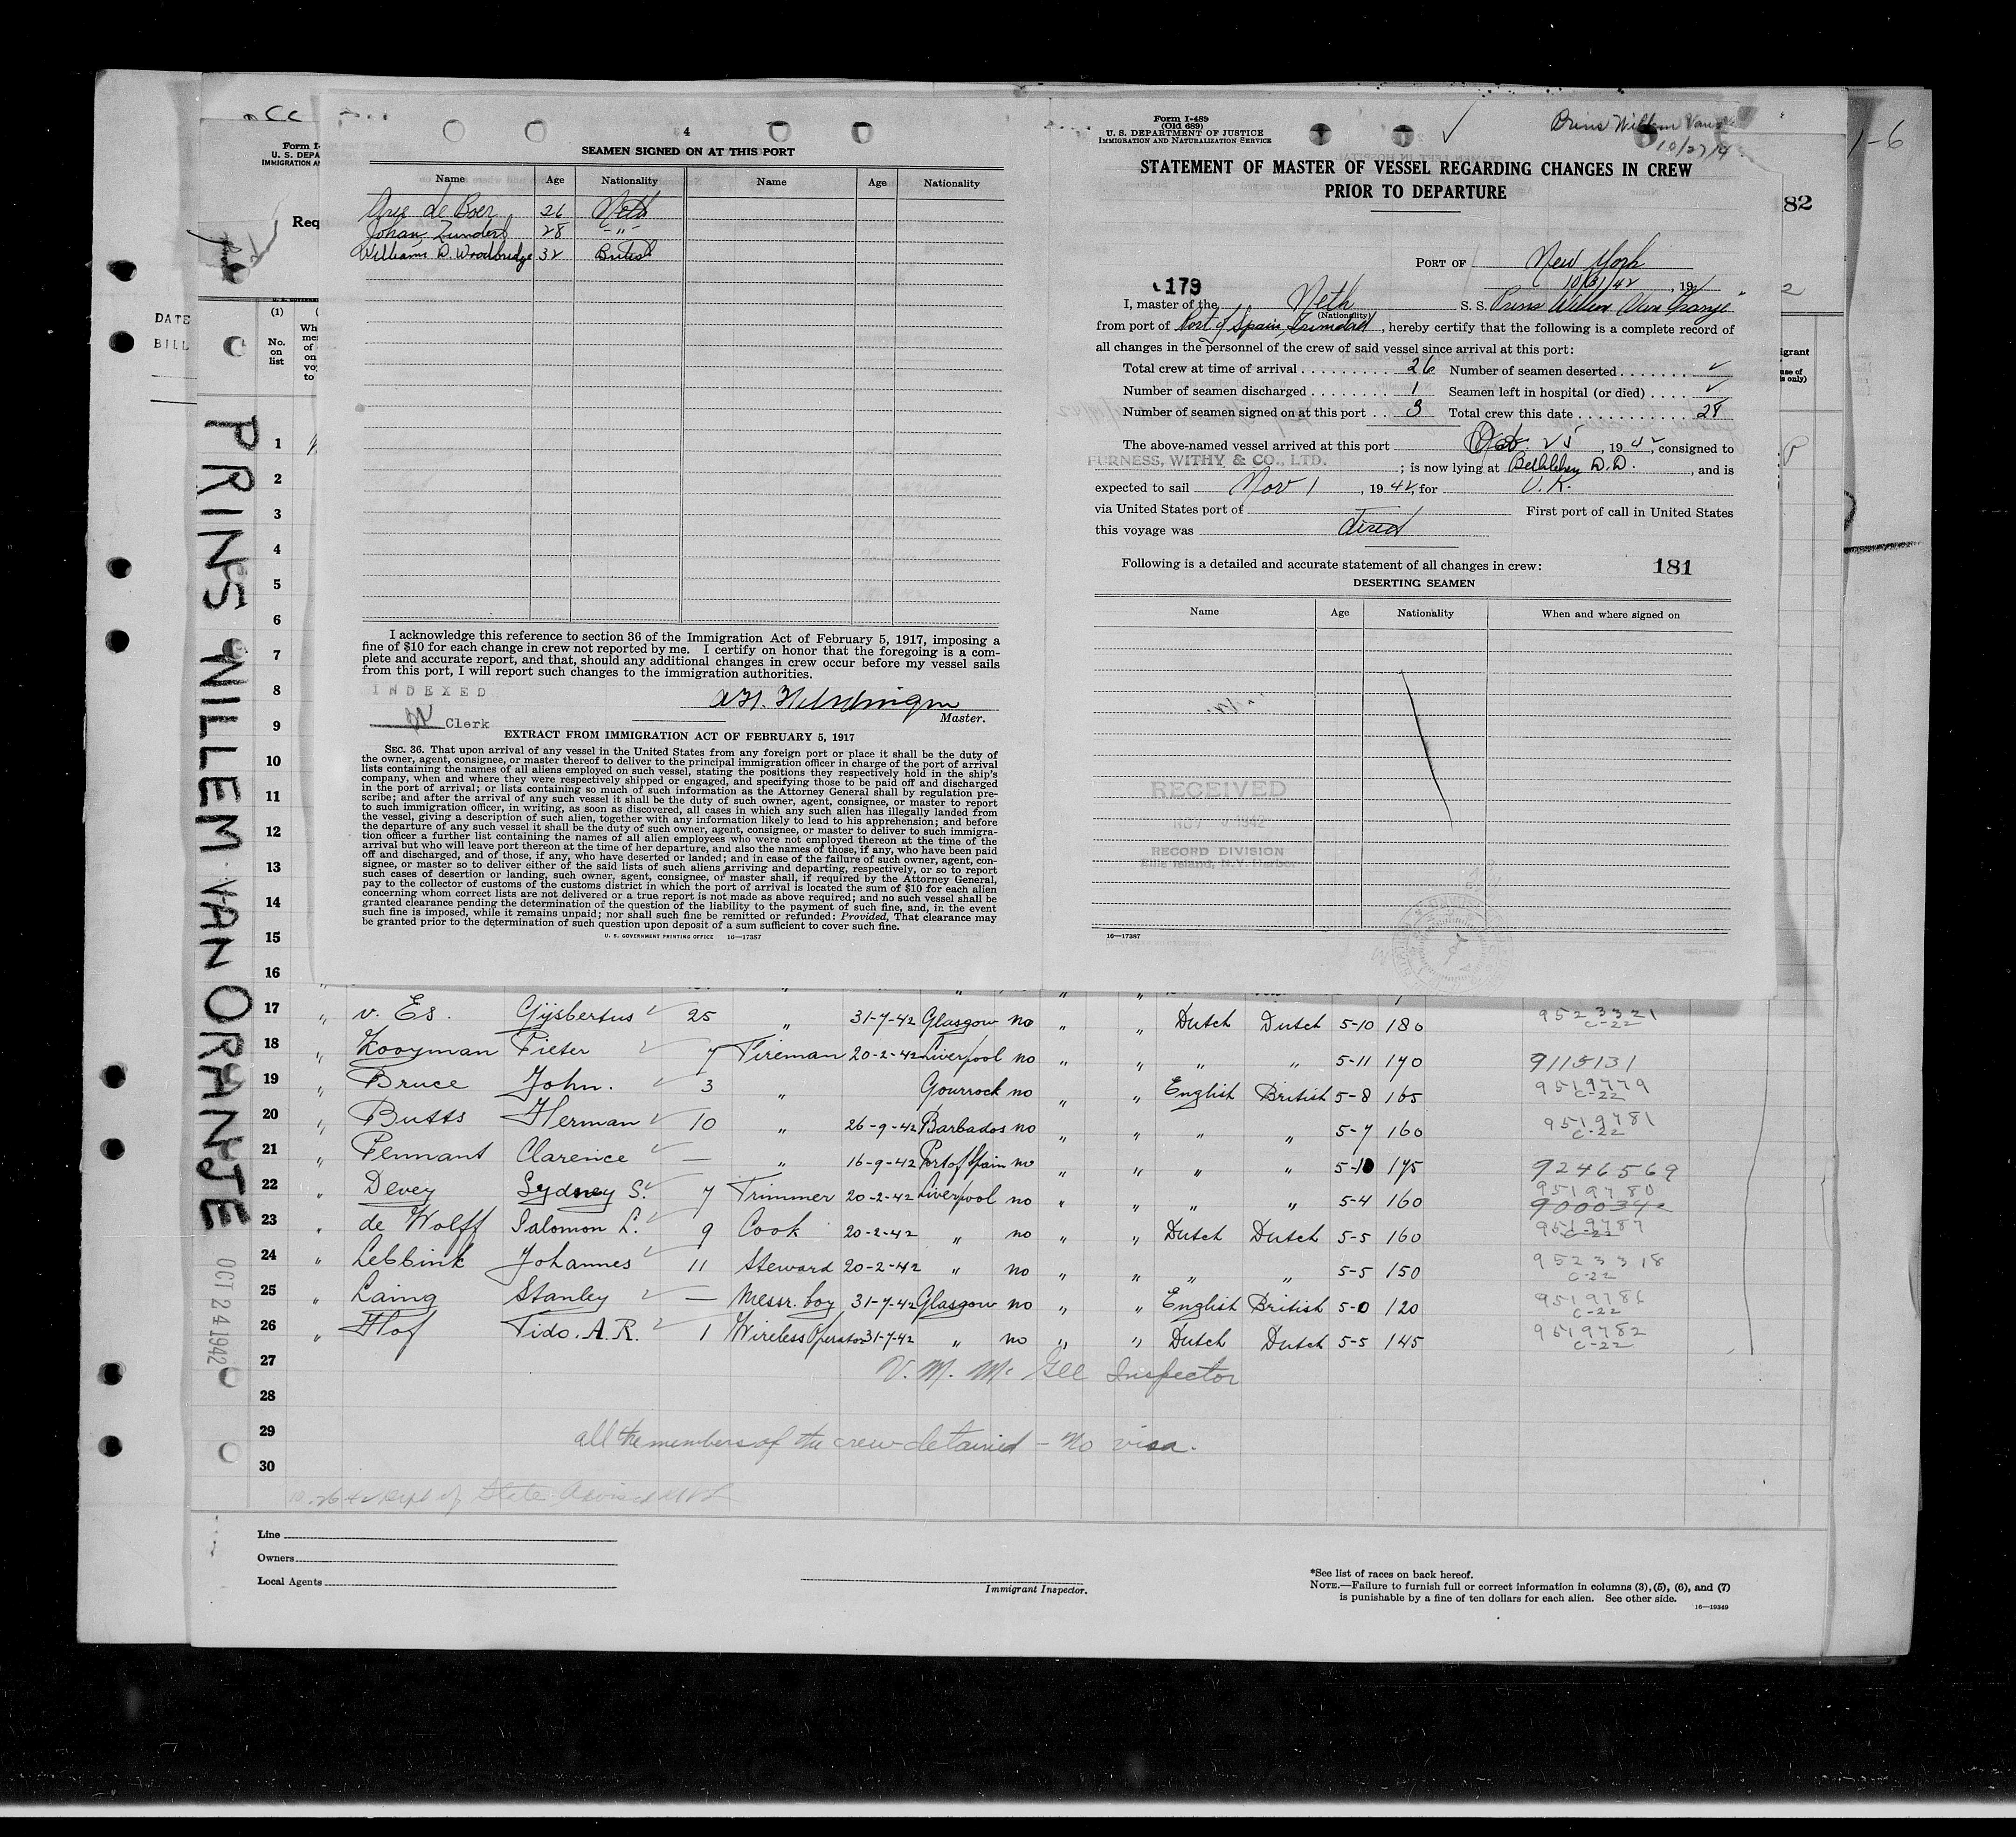 CC
4
SEAMEN SIGNED ON AT THIS PORT
Name Age Nationality Name Age Nationality
Arie de Boer 26 Neth
Johan Zunder 28 -"-
Williams D. Woodbridge 32 British
I acknowledge this reference to section 36 of the Immigration Act of February 5, 1917, imposing a
fine of $10 for each change in crew not reported by me. I certify on honor that the foregoing is a com-
plete and accurate report, and that, should any additional changes in crew occur before my vessel sails
from this port, I will report such changes to the immigration authorities.
INDEXED
Clerk
Master.
EXTRACT FROM IMMIGRATION ACT OF FEBRUARY 5, 1917
SEC. 36. That upon arrival of any vessel in the United States from any foreign port or place it shall be the duty of
the owner, agent, consignee, or master thereof to deliver to the principal immigration officer in charge of the port of arrival
lists containing the names of all aliens employed on such vessel, stating the positions they respectively hold in the ship's
company, when and where they were respectively shipped or engaged, and specifying those to be paid off and discharged
in the port of arrival; or lists containing so much of such information as the Attorney General shall by regulation pre-
scribe; and after the arrival of any such vessel it shall be the duty of such owner, agent, consignee, or master to report
to such immigration officer, in writing, as soon as discovered, all cases in which any such alien has illegally landed from
the vessel, giving a description of such alien, together with any information likely to lead to his apprehension; and before
the departure of any such vessel it shall be the duty of such owner, agent, consignee, or master to deliver to such immigra-
tion officer a further list containing the names of all alien employees who were not employed thereon at the time of the
arrival but who will leave port thereon at the time of her departure, and also the names of those, if any, who have been paid
off and discharged, and of those, if any, who have deserted or landed; and in case of the failure of such owner, agent, con-
signee, or master so to deliver either of the said lists of such aliens arriving and departing, respectively, or so to report
such cases of desertion or landing, such owner, agent, consignee, or master shall, if required by the Attorney General,
pay to the collector of customs of the customs district in which the port of arrival is located the sum of $10 for each alien
concerning whom correct lists are not delivered or a true report is not made as above required; and no such vessel shall be
granted clearance pending the determination of the question of the liability to the payment of such fine, and, in the event
such fine is imposed, while it remains unpaid; nor shall such fine be remitted or refunded: Provided, That clearance may
be granted prior to the determination of such question upon deposit of a sum sufficient to cover such fine.
U. S. GOVERNMENT PRINTING OFFICE 16—17387
Form I-489
(Old 689)
U. S. DEPARTMENT OF JUSTICE
IMMIGRATION AND NATURALIZATION SERVICE
Prins Willem Van
STATEMENT OF MASTER OF VESSEL REGARDING CHANGES IN CREW
PRIOR TO DEPARTURE
PORT OF New York
10/31/42, 19
179
I, master of the Neth S. S. Prins Willem Van Oranje
(Nationality)
from port of Port of Spain, Trinidad, hereby certify that the following is a complete record of
all changes in the personnel of the crew of said vessel since arrival at this port:
Total crew at time of arrival 26 Number of seamen deserted ✓
Number of seamen discharged 1 Seamen left in hospital (or died) ✓
Number of seamen signed on at this port 3 Total crew this date 28
The above-named vessel arrived at this port Oct. 25, 1942, consigned to
FURNESS, WITHY & CO., LTD. ; is now lying at Bethlehem D.D., and is
expected to sail Nov 1, 1942, for U.K.
via United States port of First port of call in United States
this voyage was direct
Following is a detailed and accurate statement of all changes in crew: 181
DESERTING SEAMEN
Name Age Nationality When and where signed on
RECEIVED
NOV 1942
RECORD DIVISION
Ellis Island, N.Y. Harbor
16—17387
1-6
82
DATE
BILL
Form I-
U. S. DEPA
IMMIGRATION A
Req
(1)
No.
on
list
PRINS WILLEM VAN ORANJE
OCT 24 1942
1
2
3
4
5
6
7
8
9
10
11
12
13
14
15
16
17 " v. Es. Gijsbertus 25 " 31-7-42 Glasgow no " " Dutch Dutch 5-10 180 9523321 C-22
18 " Kooyman Pieter 7 Fireman 20-2-42 Liverpool no " " " " 5-11 170 9115131
19 " Bruce John. 3 " Gourrock no " " English British 5-8 165 9519779 C-22
20 " Butts Herman 10 " 26-9-42 Barbados no " " " " 5-7 160 9519781 C-22
21 " Pennant Clarence — " 16-9-42 Port of Spain no " " " " 5-10 175 9246569
22 " Devey Sydney S. 7 Trimmer 20-2-42 Liverpool no " " " " 5-4 160 9519780 9000034
23 " de Wolff Salomon L. 9 Cook 20-2-42 " no " " Dutch Dutch 5-5 160 9519787 C-22
24 " Lebbink Johannes 11 Steward 20-2-42 " no " " " " 5-5 150 9523318 C-22
25 " Laing Stanley — Messr. boy 31-7-42 Glasgow no " " English British 5-0 120 9519786 C-22
26 " Hof Tido. A. R. 1 Wireless Operator 31-7-42 " no " " Dutch Dutch 5-5 145 9519782 C-22
27
V. M. McGee Inspector
28
29
all the members of the crew detained — no visa.
30
10-26-42 Dept of State advised
Line
Owners
Local Agents
Immigrant Inspector.
*See list of races on back hereof.
NOTE.—Failure to furnish full or correct information in columns (3), (5), (6), and (7)
is punishable by a fine of ten dollars for each alien. See other side.
16—19349